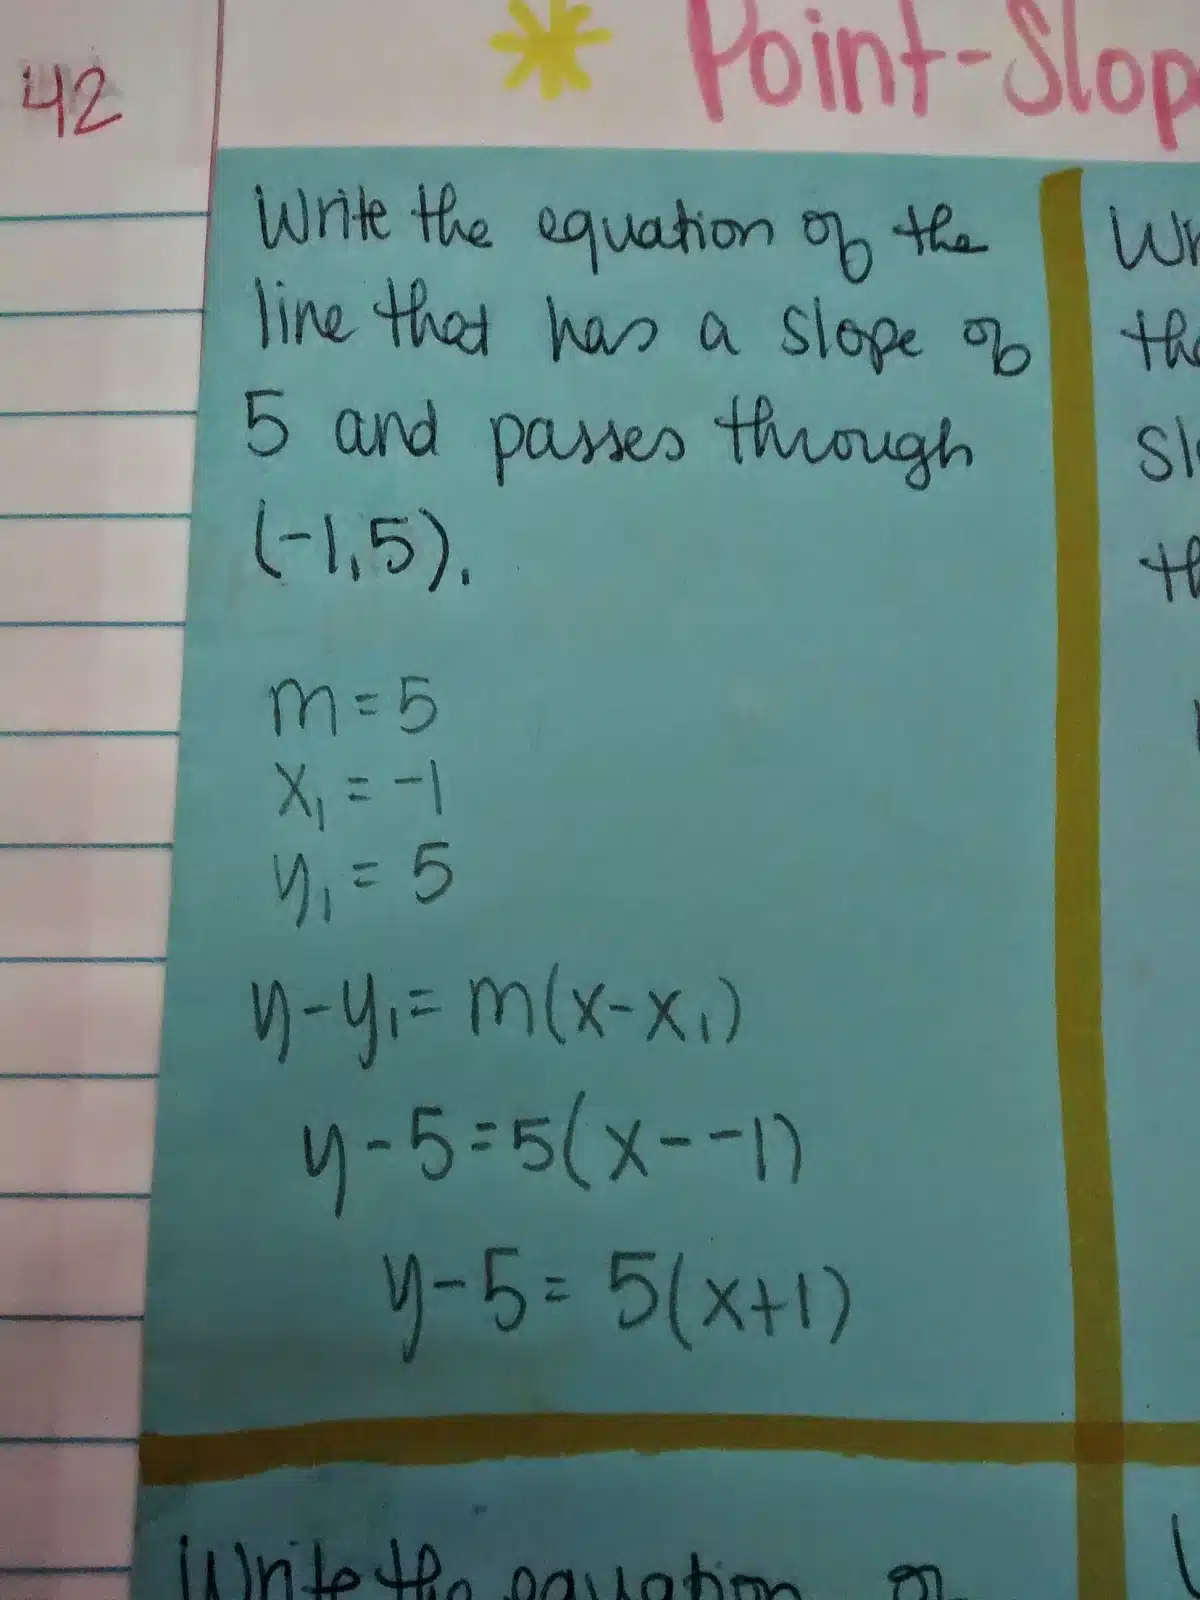 42
Point-Slop
Write the equation of the
line that has a slope of
5 and passes through
(-1,5).
m=5
x₁ = -1
y₁ = 5
y-y₁= m(x-x₁)
y-5=5(x--1)
y-5= 5(x+1)
Wr
the
Slo
th
Write the equation of